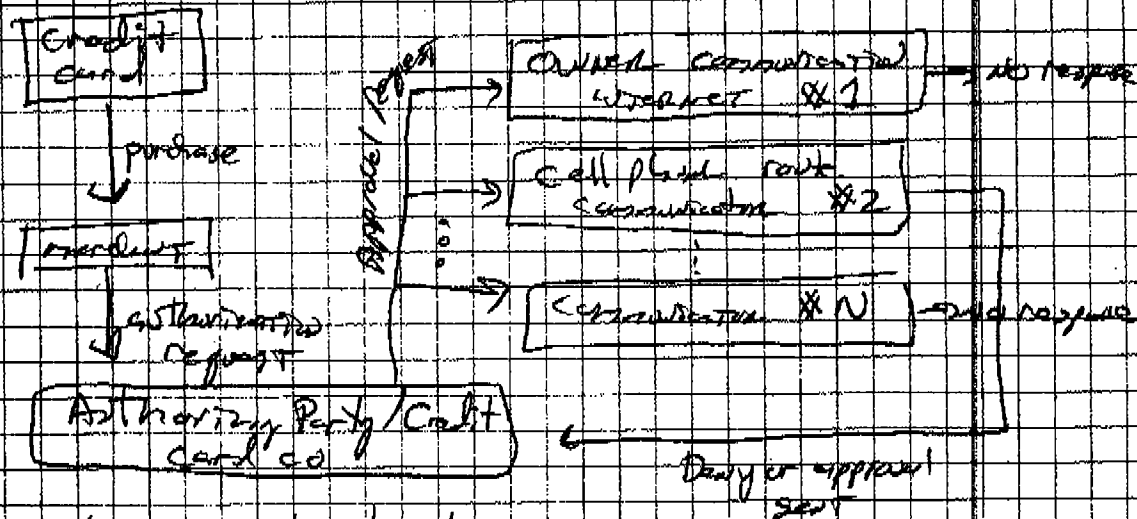 Credit
card
purchase
merchant
authorization
request
Authorizing Party / Credit
card co
Approval Request
Owner communication
internet #1
No response
Cell phone route
communication #2
Communication #N
No response
Deny or approval
sent